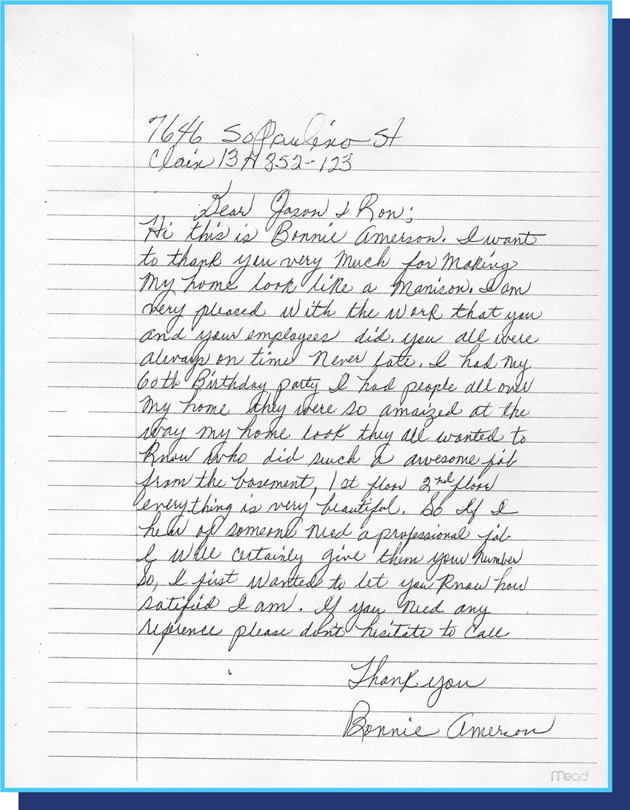 7646 So Paulina St
Claim 13H352-123
Dear Jason & Ron;
Hi this is Bonnie Amerson. I want
to thank you very Much for Making
My home look like a Manison. I am
very pleased with the work that you
and your employees did, you all were
always on time Never late. I had My
60th Birthday party I had people all over
My home they were so amaized at the
way my home look they all wanted to
Know who did such a awesome job
from the basement, 1st floor 2nd floor
everything is very beautiful. So If I
hear of someone Need a professional job
I will certainly give them your number
So, I just wanted to let you Know how
satifid I am. If you Need any
reference please don't hesitate to Call
Thank you
Bonnie Amerson
Mead